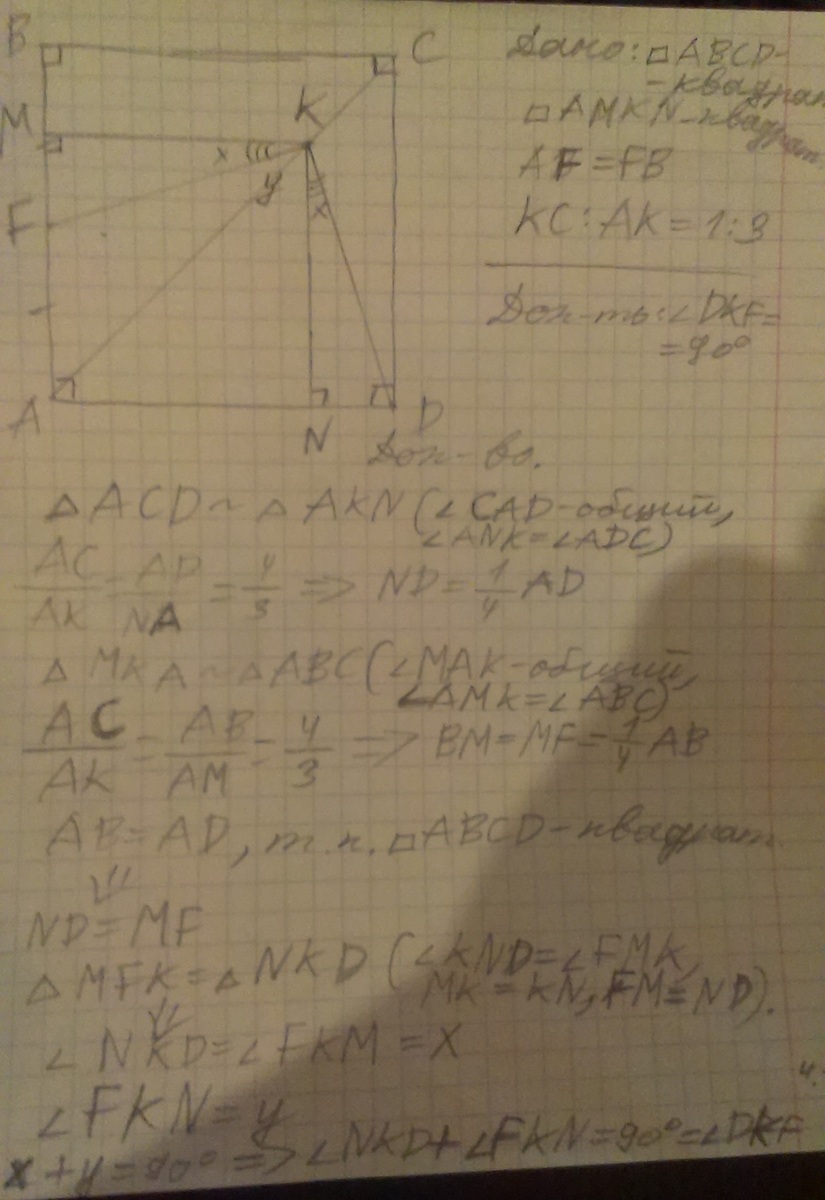 B
C
M
K
x
y
x
F
A
N
D
Дано: □ABCD-
-квадрат
□AMKN-квадрат
AF=FB
KC:AK=1:3
Док-ть:∠DKF=
=90°
Док-во.
△ACD~△AKN(∠CAD-общий,
∠ANK=∠ADC)
AC/AK=AD/NA=4/3=>ND=1/4AD
△MKA~△ABC(∠MAK-общий,
∠AMK=∠ABC)
AC/AK=AB/AM=4/3=>BM=MF=1/4AB
AB=AD, т.к.□ABCD-квадрат
⇓
ND=MF
△MFK=△NKD(∠KND=∠FMK,
MK=KN,FM=ND).
⇓
∠NKD=∠FKM=x
∠FKN=y
x+y=90°=>∠NKD+∠FKN=90°=∠DKF